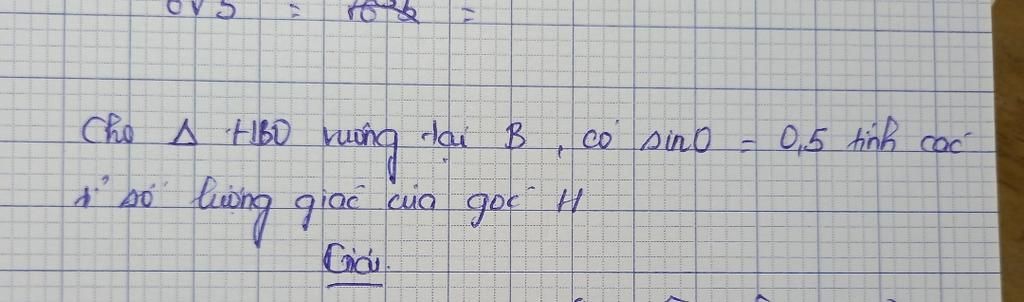 Cho Δ HBO vuông tại B, có sinO = 0,5 tính các
tỉ số lượng giác của góc H
Giải.